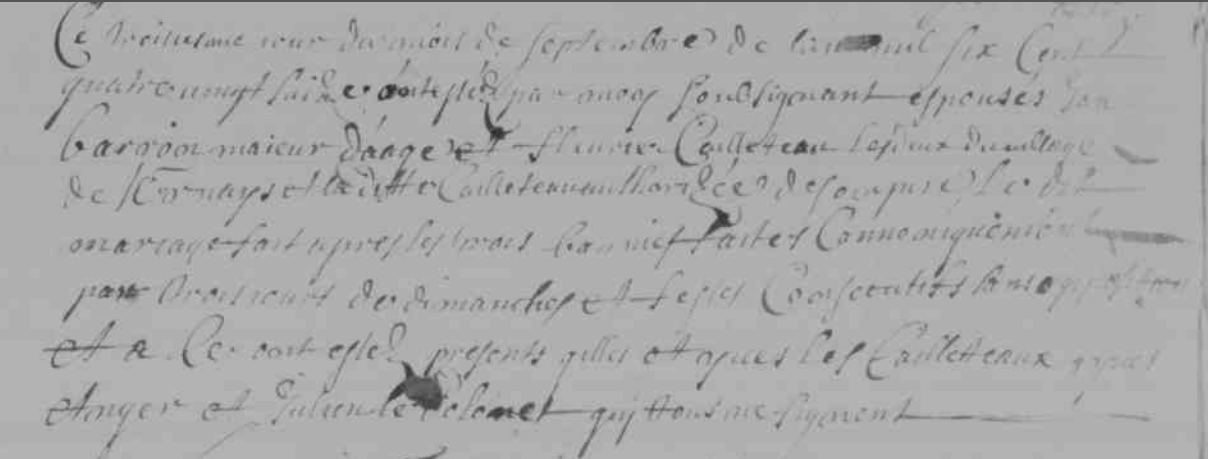 Ce troisiesme iour du mois de septembre de lan mil six Cent
quatre vingt saize ont estez par moy soubsignant espousés Jan
barrion maieur d'aage et fleurie Cailleteau les deux du village
de et la ditte Cailleteau authorizée de son pere le dit
mariage fait apres les trois bannies faittes Cannoniquement
par trois iours de dimanches et festes Consecutifs sans opposition
et a Ce ont estez presents gilles et les Cailleteaux
et Julien le qui tous ne signent